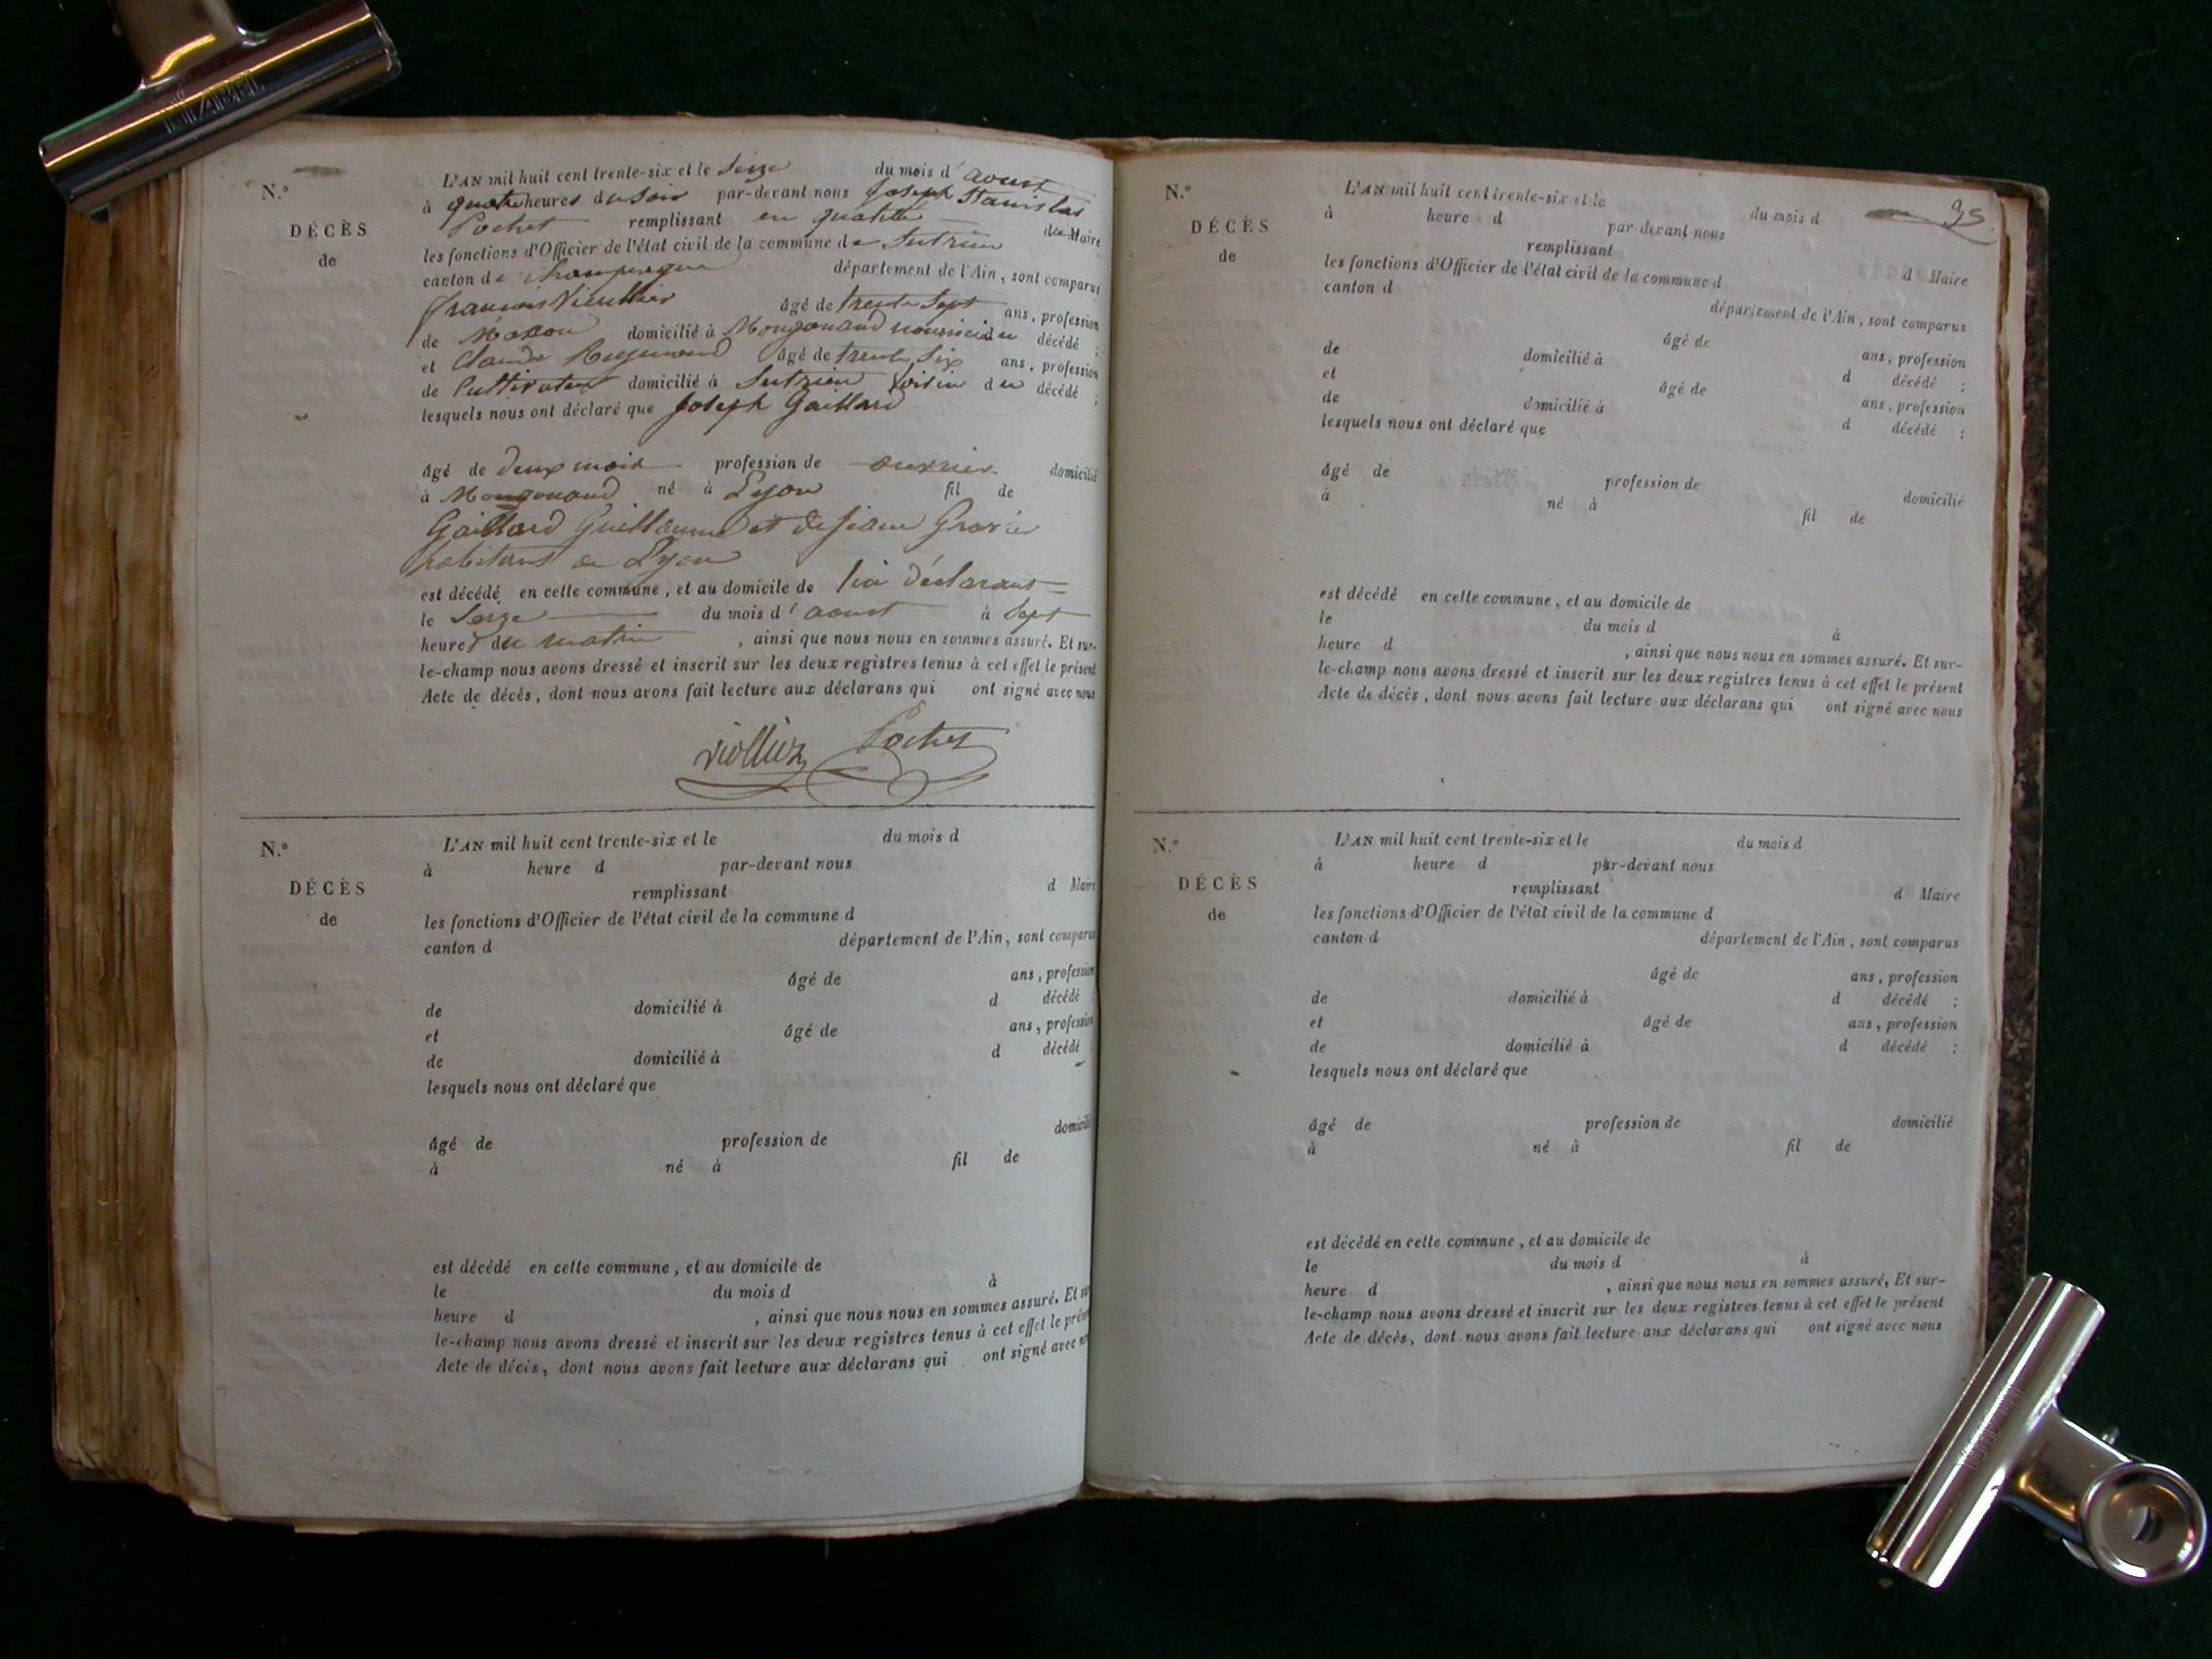 N.º
DÉCÈS
de
L'AN mil huit cent trente-six et le Seize du mois d'aoust
à quatre heures du soir par-devant nous Joseph Stanislas
Pochet remplissant en qualité de Maire
les fonctions d'Officier de l'état civil de la commune de Sutrieu
canton de Champagne département de l'Ain, sont comparus
francois âgé de trente sept ans, profession
de Masson domicilié à Mongonand nourricier du décédé ;
et Claude âgé de trente six ans, profession
de Cultivateur domicilié à Sutrieu Voisin du décédé ;
lesquels nous ont déclaré que Joseph Gaillard
âgé de deux mois profession de domicilié
à Mongonand né à Lyon fil de
Gaillard Guillaume et de Jeane
habitans a Lyon
est décédé en cette commune, et au domicile de déclarant
le Seize du mois d'aoust à Sept
heures du matin, ainsi que nous nous en sommes assuré. Et sur-
le-champ nous avons dressé et inscrit sur les deux registres tenus à cet effet le présent
Acte de décès, dont nous avons fait lecture aux déclarans qui ont signé avec nous
Viollier Pochet
N.º
DÉCÈS
de
L'AN mil huit cent trente-six et le du mois d
à heure d par-devant nous
remplissant d Maire
les fonctions d'Officier de l'état civil de la commune d
canton d département de l'Ain, sont comparus
âgé de ans, profession
de domicilié à d décédé ;
et âgé de ans, profession
de domicilié à d décédé
lesquels nous ont déclaré que
âgé de profession de domicilié
à né à fil de
est décédé en cette commune, et au domicile de
le du mois d à
heure d , ainsi que nous nous en sommes assuré. Et sur
le-champ nous avons dressé et inscrit sur les deux registres tenus à cet effet le présent
Acte de décès, dont nous avons fait lecture aux déclarans qui ont signé avec nous
95
N.º
DÉCÈS
de
L'AN mil huit cent trente-six et le du mois d
à heure d par-devant nous
remplissant d Maire
les fonctions d'Officier de l'état civil de la commune d
canton d département de l'Ain, sont comparus
âgé de ans, profession
de domicilié à d décédé ;
et âgé de ans, profession
de domicilié à d décédé ;
lesquels nous ont déclaré que
âgé de profession de domicilié
à né à fil de
est décédé en cette commune, et au domicile de
le du mois d à
heure d , ainsi que nous nous en sommes assuré. Et sur-
le-champ nous avons dressé et inscrit sur les deux registres tenus à cet effet le présent
Acte de décès, dont nous avons fait lecture aux déclarans qui ont signé avec nous
N.º
DÉCÈS
de
L'AN mil huit cent trente-six et le du mois d
à heure d par-devant nous
remplissant d Maire
les fonctions d'Officier de l'état civil de la commune d
canton d département de l'Ain, sont comparus
âgé de ans, profession
de domicilié à d décédé ;
et âgé de ans, profession
de domicilié à d décédé ;
lesquels nous ont déclaré que
âgé de profession de domicilié
à né à fil de
est décédé en cette commune, et au domicile de
le du mois d à
heure d , ainsi que nous nous en sommes assuré, Et sur-
le-champ nous avons dressé et inscrit sur les deux registres tenus à cet effet le présent
Acte de décès, dont nous avons fait lecture aux déclarans qui ont signé avec nous